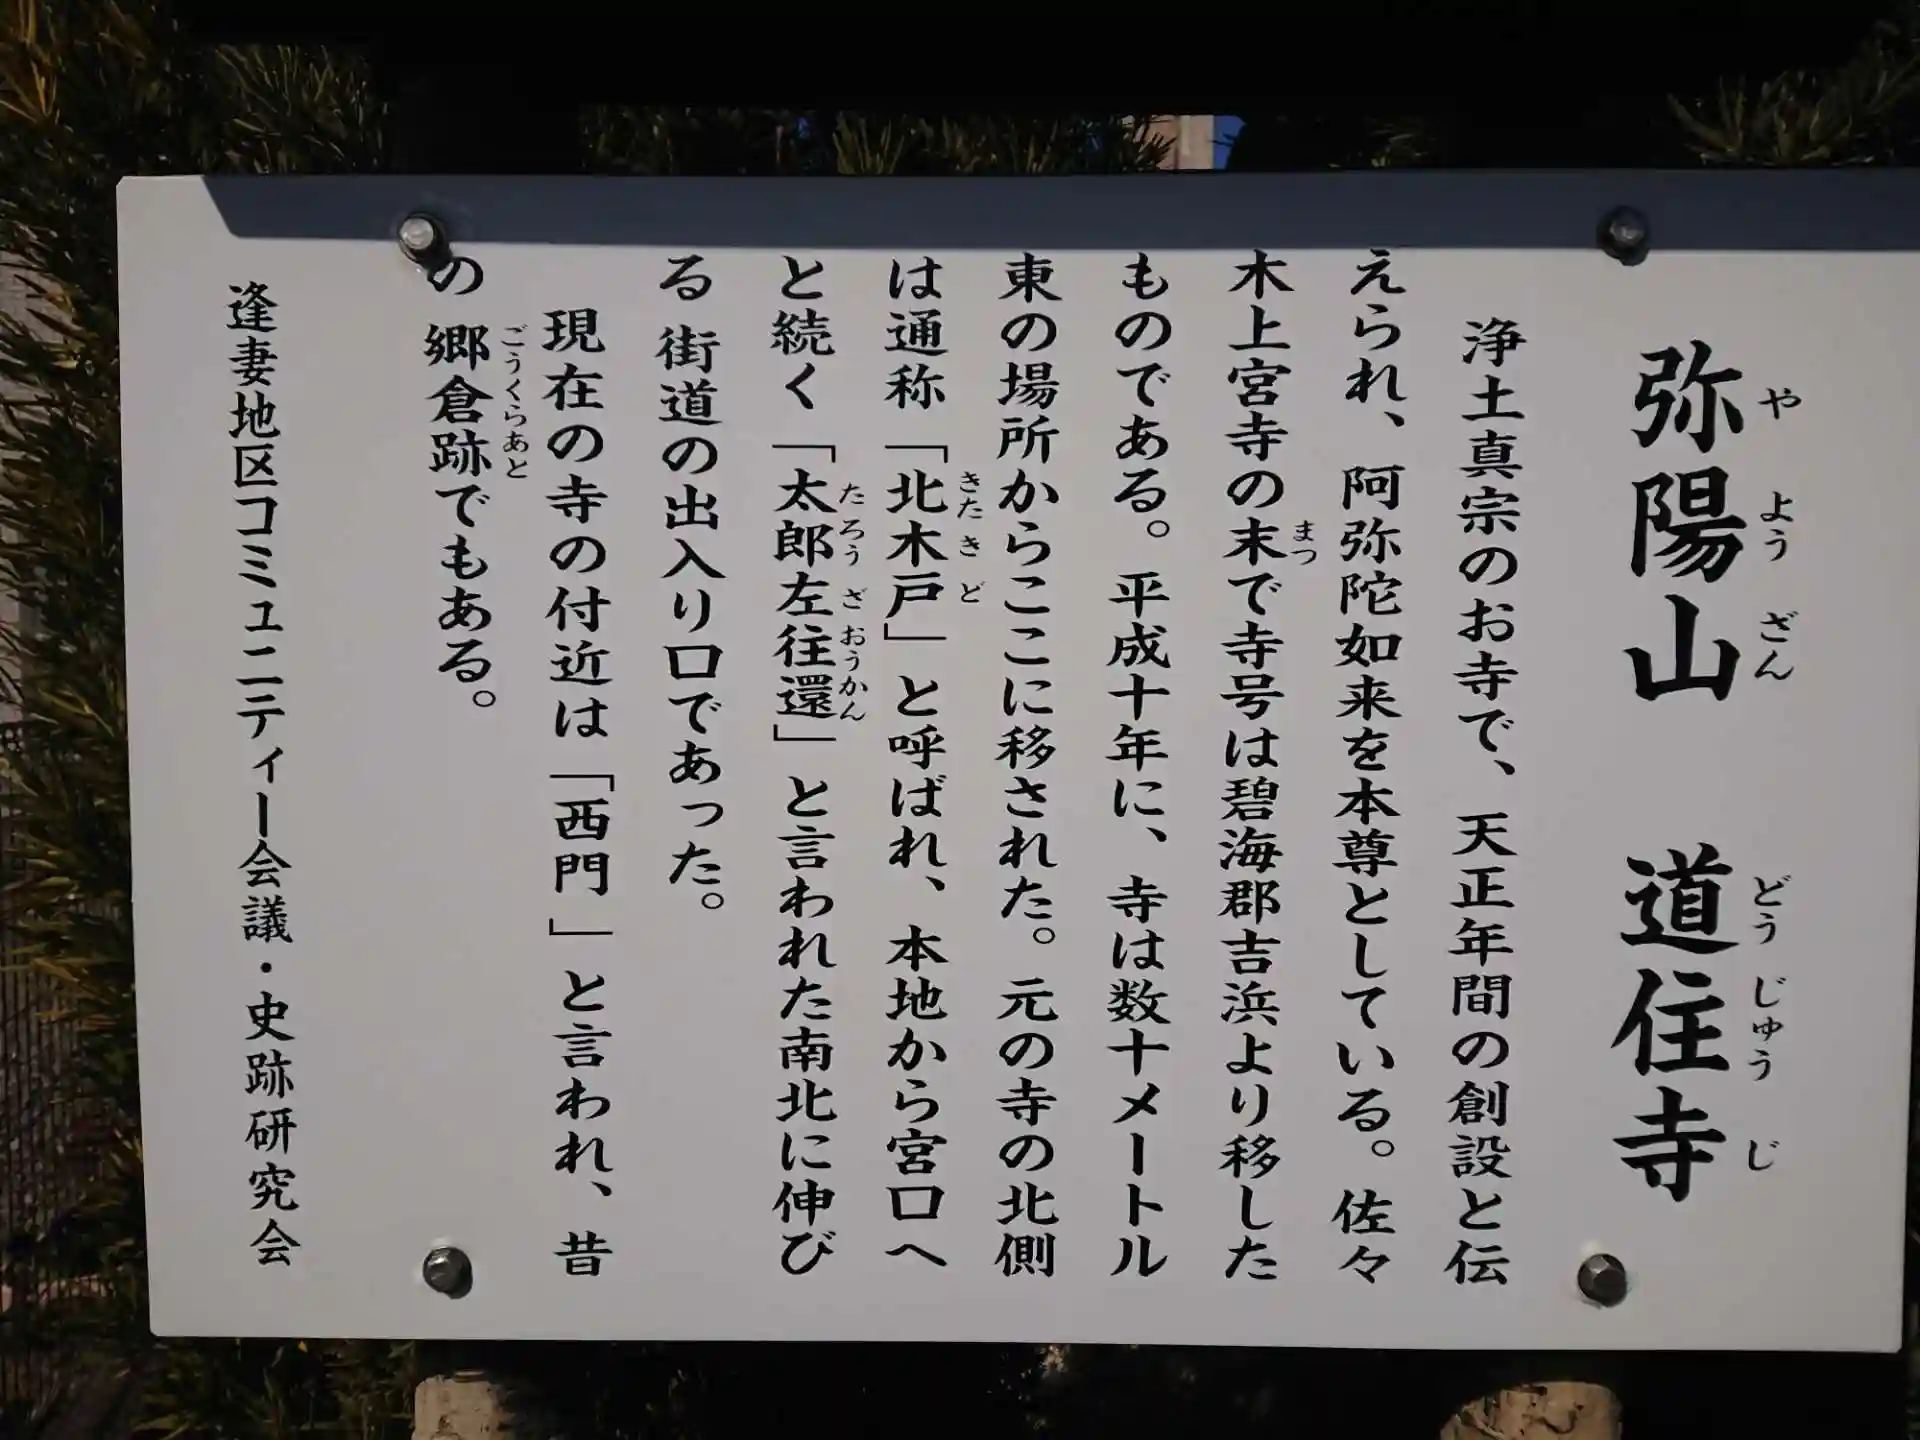 弥陽山　道住寺
やようざん　どうじゅうじ
浄土真宗のお寺で、天正年間の創設と伝
えられ、阿弥陀如来を本尊としている。佐々
木上宮寺の末で寺号は碧海郡吉浜より移した
まつ
ものである。平成十年に、寺は数十メートル
東の場所からここに移された。元の寺の北側
は通称「北木戸」と呼ばれ、本地から宮口へ
きたきど
と続く「太郎左往還」と言われた南北に伸び
たろうざおうかん
る街道の出入り口であった。
現在の寺の付近は「西門」と言われ、昔
の郷倉跡でもある。
ごうくらあと
逢妻地区コミュニティー会議・史跡研究会